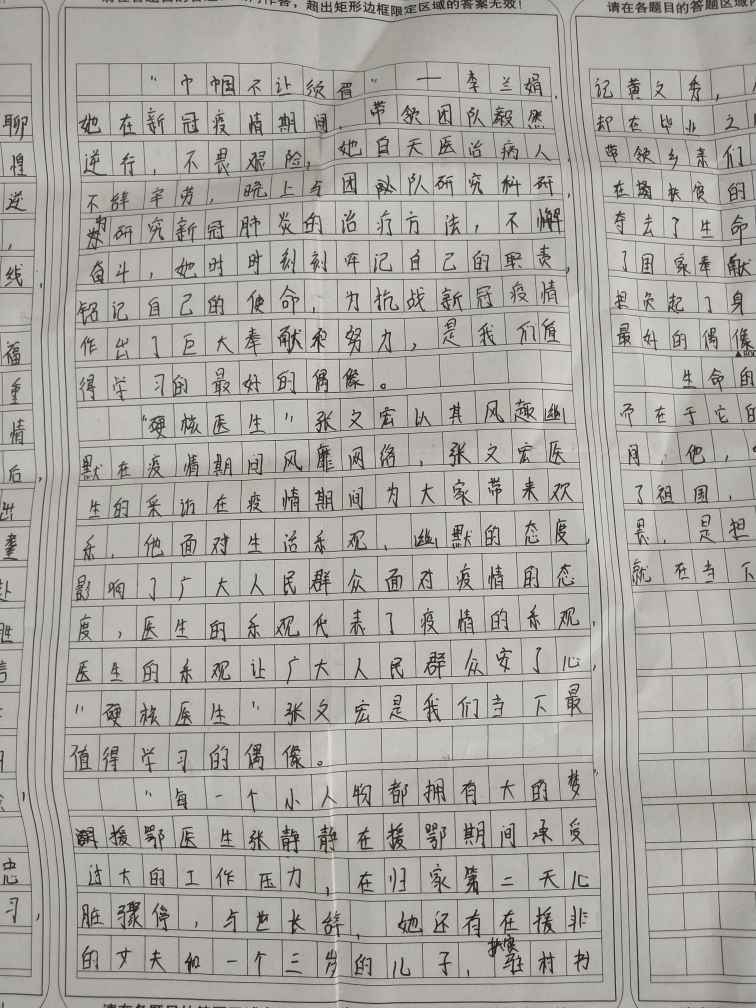 超出矩形边框限定区域的答案无效!
请在各题目的答题区域内
“巾帼不让须眉”一李兰娟,
她在新冠疫情期间,带领团队毅然
逆行,不畏艰险,她白天医治病人,
不辞辛劳,晚上与团队研究科研,
为研究新冠肺炎的治疗方法,不懈
奋斗,她时时刻刻牢记自己的职责,
铭记自己的使命,为抗战新冠疫情
作出了巨大奉献和努力,是我们值
得学习的最好的偶像。
“硬核医生”张文宏以其风趣幽
默在疫情期间风靡网络,张文宏医
生的采访在疫情期间为大家带来欢
乐,他面对生活乐观、幽默的态度,
影响了广大人民群众面对疫情的态
度,医生的乐观代表了疫情的乐观,
医生的乐观让广大人民群众安了心,
“硬核医生”张文宏是我们当下最
值得学习的偶像。
“每一个小人物都拥有大的梦”
援鄂医生张静静在援鄂期间承受
过大的工作压力,在归家第二天心
脏骤停,与世长辞,她还有在援非
的丈夫和一个三岁的儿子,扶贫驻村书
记黄文秀,
却在毕业之
带领乡亲们
在扶贫的
夺去了生命
了国家奉献
担负起了身
最好的偶像
生命的
而在于它的
间,他,
了祖国,
畏,是担
就在当下
聊
逆
,
线,
福
重
情
后,
出
童
胜
忠
习,